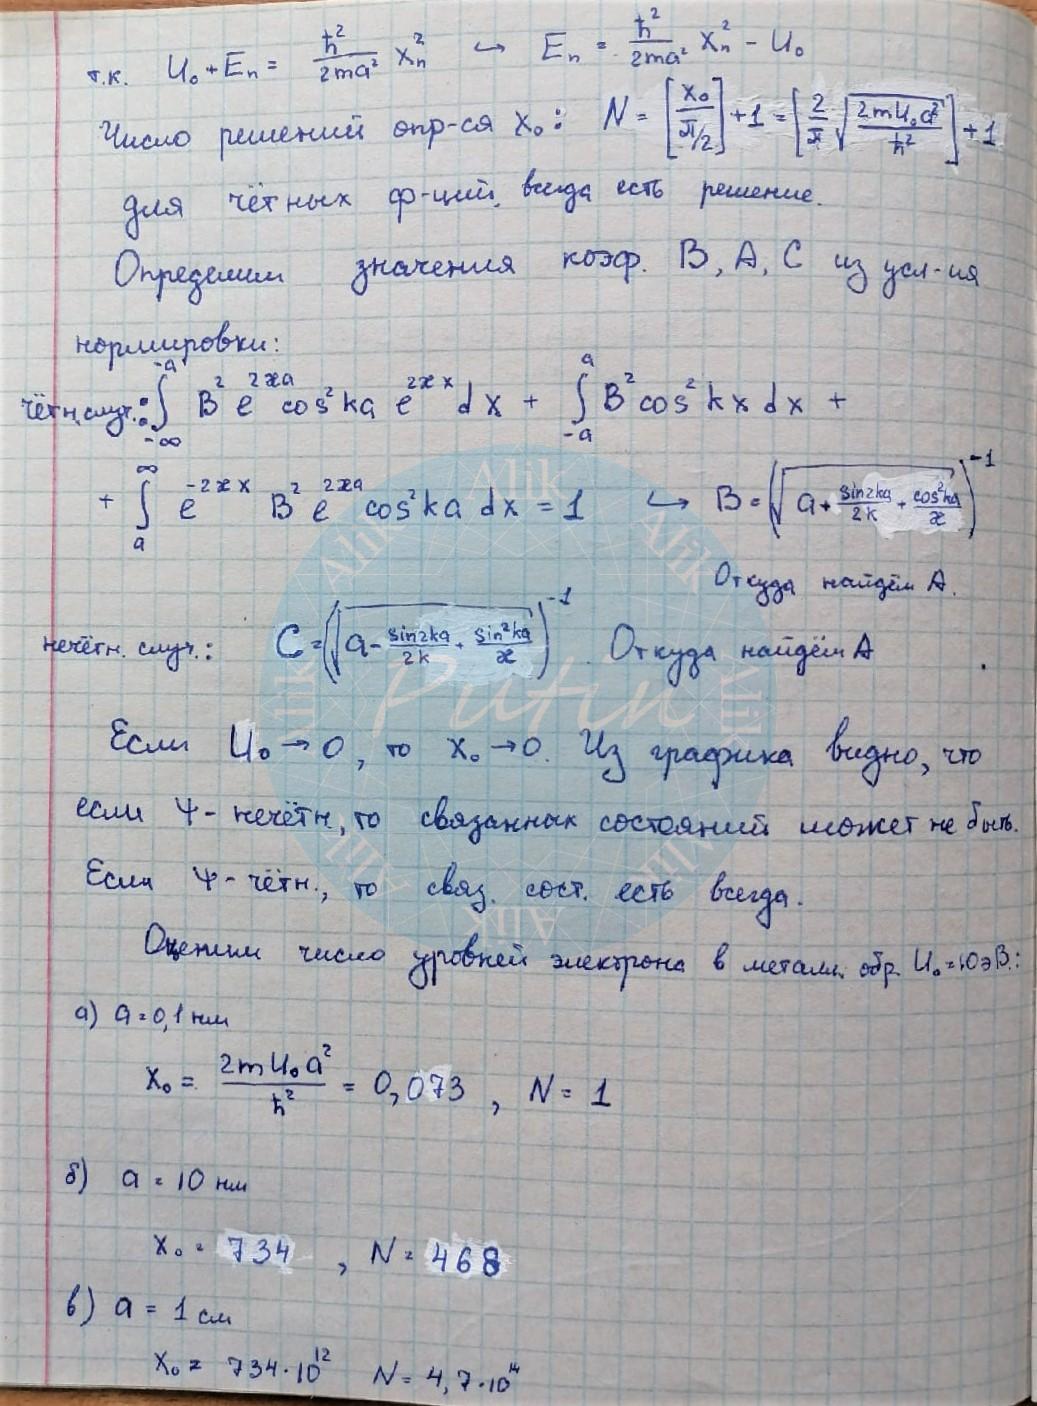 т.к. U₀+Eₙ = ħ²/2ma² Xₙ² ↪ Eₙ = ħ²/2ma² Xₙ² - U₀
Число решений опр-ся X₀: N = [X₀/(π/2)] + 1 = [2/π √(2mU₀a²/ħ²)] + 1
для чётных ф-ций всегда есть решение.
Определим значения коэф. B, A, C из усл-ия
нормировки:
чётн. случ.: ∫_{-∞}^{-a} B² e^{2æa} cos²ka e^{2æx} dx + ∫_{-a}^{a} B² cos² kx dx +
+ ∫_{a}^{∞} e^{-2æx} B² e^{2æa} cos²ka dx = 1 ↪ B = (√(a + sin2ka/2k + cos²ka/æ))^{-1}
Откуда найдём A.
нечётн. случ.: C = (√(a - sin2ka/2k + sin²ka/æ))^{-1}. Откуда найдём A
Если U₀ → 0, то X₀ → 0. Из графика видно, что
если Ψ - нечётн, то связанных состояний может не быть.
Если Ψ - чётн., то связ. сост. есть всегда.
Оценим число уровней электрона в металл. обр. U₀=10эВ.:
а) a = 0,1 нм
X₀ = 2mU₀a²/ħ² = 0,073, N = 1
б) a = 10 нм
X₀ = 734, N = 468
в) a = 1 см
X₀ = 734·10¹² N = 4,7·10¹⁴
Alik
Alik
Alik
Alik
Alik
Alik
Alik
Alik
Putin